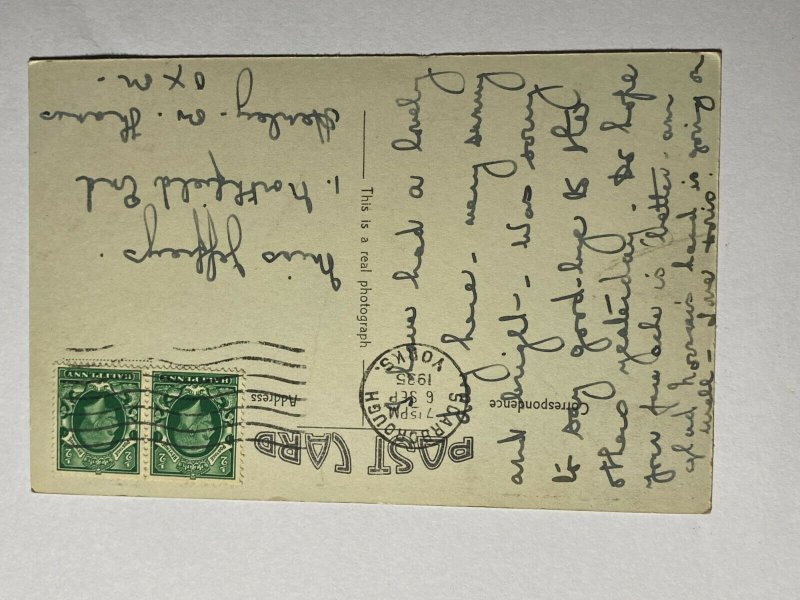 POST CARD
Correspondence
Address
This is a real photograph
SCARBOROUGH
7 15 PM
6 SEP
1935
YORKS.
HALFPENNY
HALFPENNY
have had a lovely
here - very sunny
and bright - Was sorry
to say good-bye to the
others yesterday. Do hope
you face is better - am
glad hand is going on
well - Love
Miss Jeffreys.
1. Northfield End
Henley. on. Thames
Oxon.